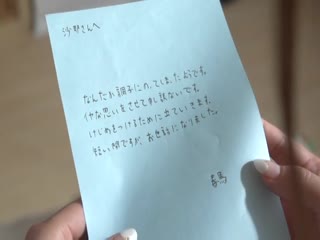 沙耶さんへ
なんだか調子にのってしまったようです。
イヤな思いをさせて申し訳ないです。
けじめをつけるために出ていきます。
短い間ですが、お世話になりました。
春馬